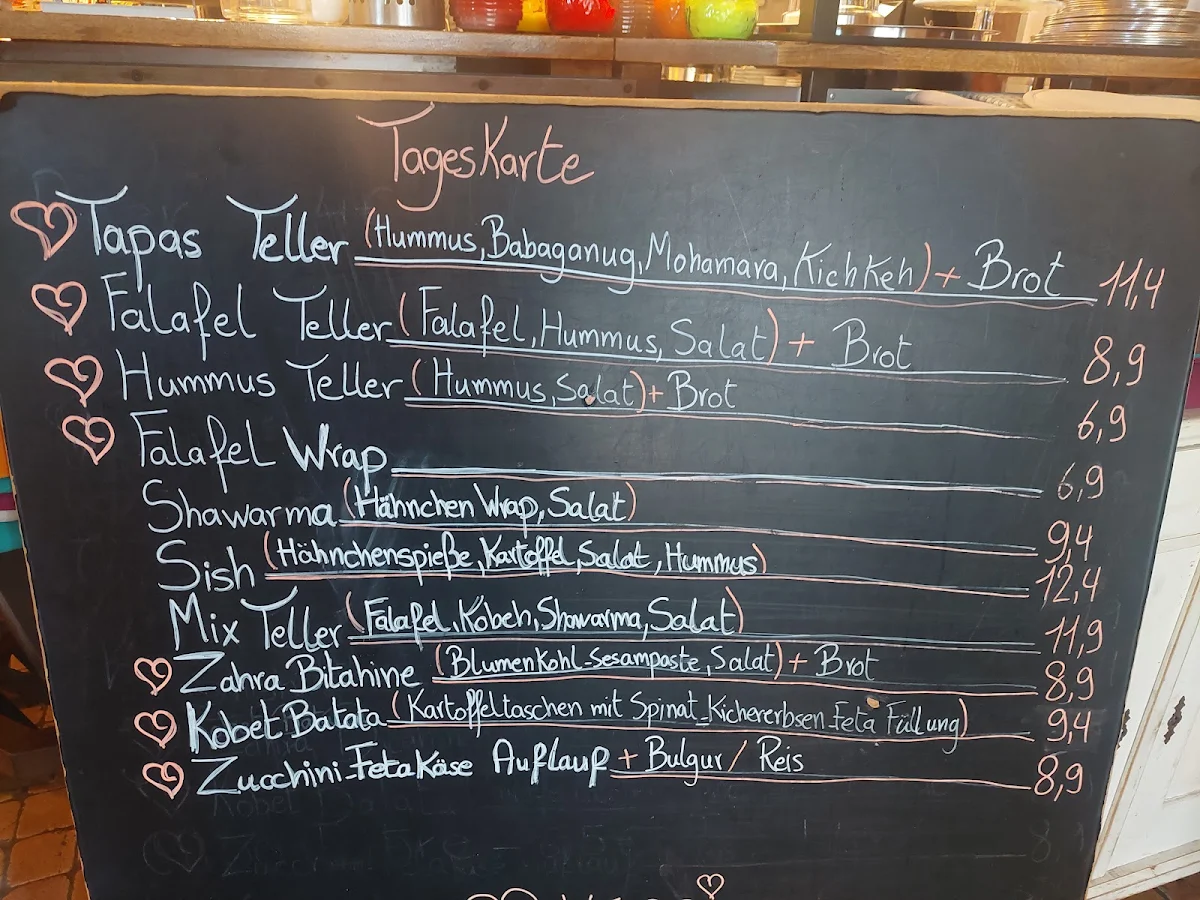 TagesKarte
Tapas Teller (Hummus, Babaganug, Mohamara, KichKeh) + Brot 11,4
Falafel Teller (Falafel, Hummus, Salat) + Brot 8,9
Hummus Teller (Hummus, Salat) + Brot 6,9
Falafel Wrap 6,9
Shawarma (Hähnchen Wrap, Salat) 9,4
Sish (Hähnchenspieße, Kartoffel, Salat, Hummus) 12,4
Mix Teller (Falafel, Kobeh, Shawarma, Salat) 11,9
Zahra Bitahine (BlumenKohl-Sesampaste, Salat) + Brot 8,9
Kobet Batata (Kartoffeltaschen mit Spinat-Kichererbsen-Feta Füllung) 9,4
Zucchini-FetaKäse Auflauf + Bulgur / Reis 8,9